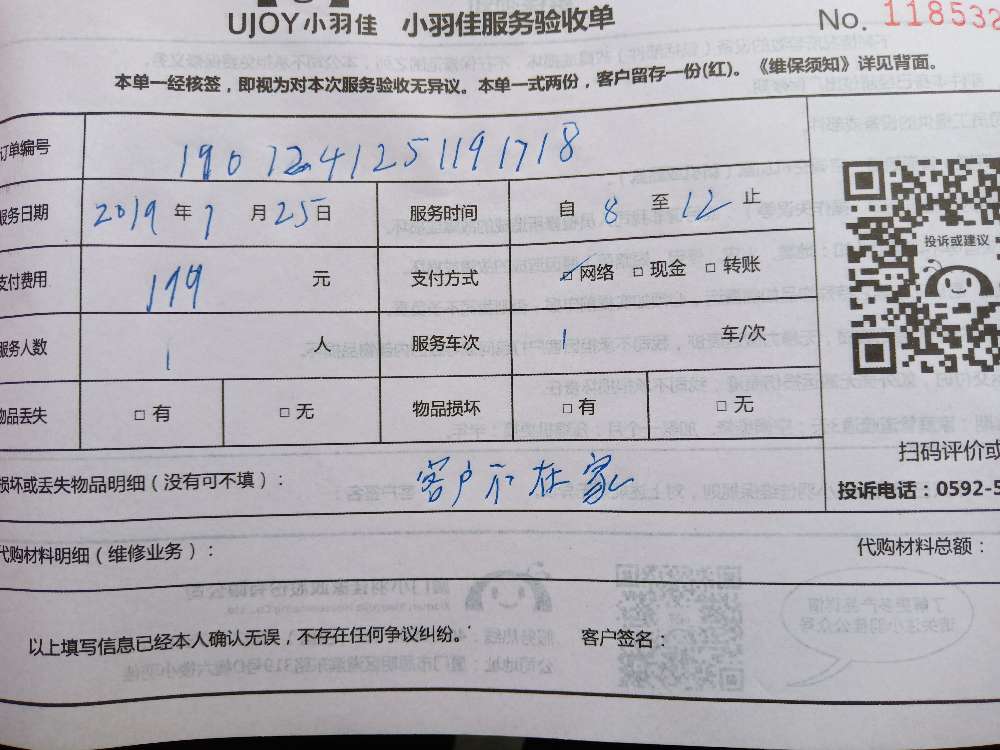 UJOY小羽佳 小羽佳服务验收单 No. 118532
本单一经核签，即视为对本次服务验收无异议。本单一式两份，客户留存一份(红)。《维保须知》详见背面。
订单编号 1907241251191718
服务日期 2019 年 7 月 25 日 服务时间 自 8 至 12 止
投诉或建议
支付费用 199 元 支付方式 □ 网络 □ 现金 □ 转账
服务人数 1 人 服务车次 1 车/次
物品丢失 □ 有 □ 无 物品损坏 □ 有 □ 无
扫码评价或
损坏或丢失物品明细（没有可不填）： 客户不在家
投诉电话：0592-5
代购材料明细（维修业务）： 代购材料总额：
以上填写信息已经本人确认无误，不存在任何争议纠纷。 客户签名：